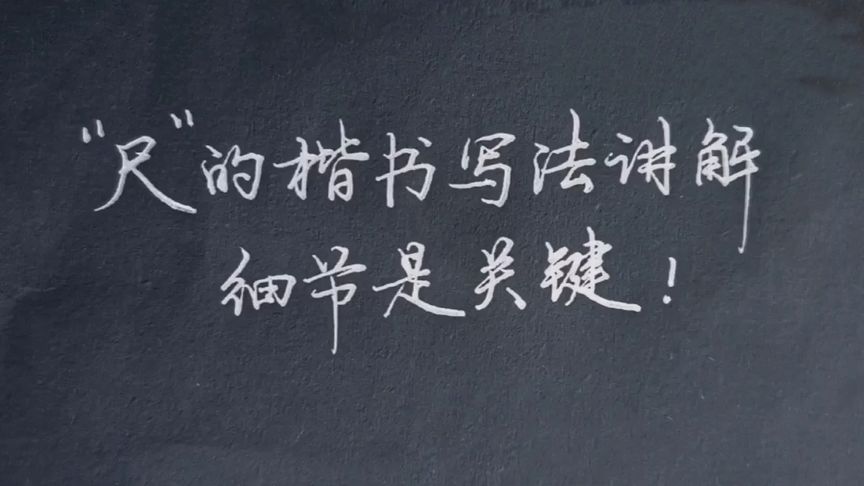 “尺”的楷书写法讲解
细节是关键！